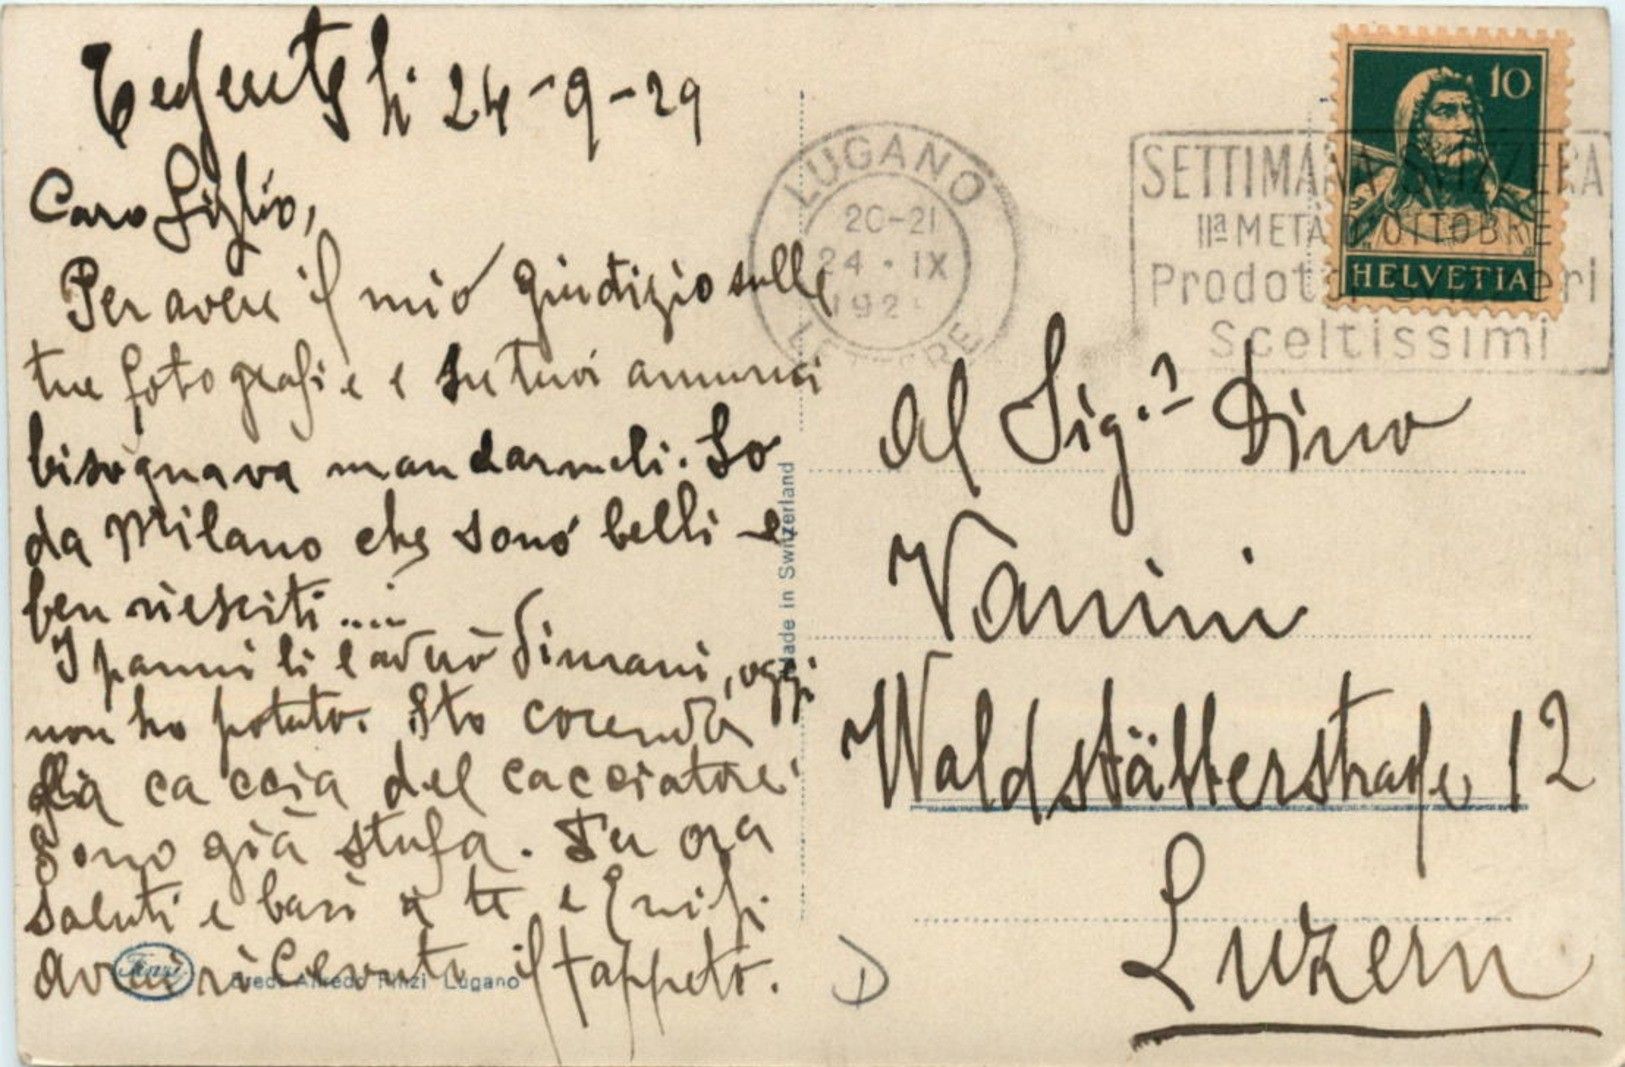 24-9-29
Caro Figlio,
Per avere il mio giudizio sulle
tue fotografie e su tuoi annunci
bisognava mandarmeli. So
da Milano che sono belli e
ben riesciti.....
I panni li laverò dimani, oggi
non ho potuto. Sto
caccia del cacciatore
Sono già stufa. Tu ora
Saluti e baci a te e
avrai ricevuto il tappeto.
Finzi
Eredi Alfredo Finzi Lugano
Made in Switzerland
LUGANO
20-21
24 · IX
192
LETTERE
SETTIMANA SVIZZERA
IIª META D'OTTOBRE
Prodotti Svizzeri
Sceltissimi
10
HELVETIA
Al Sig.r Dino
Vanini
Waldstätterstrasse 12
Luzern
D